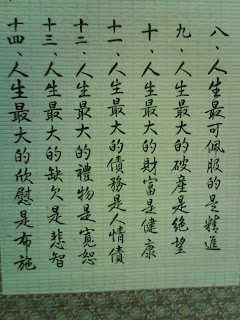 八、人生最可佩服的是精進
九、人生最大的破產是絕望
十、人生最大的財富是健康
十一、人生最大的債務是人情債
十二、人生最大的禮物是寬恕
十三、人生最大的缺欠是悲智
十四、人生最大的欣慰是布施